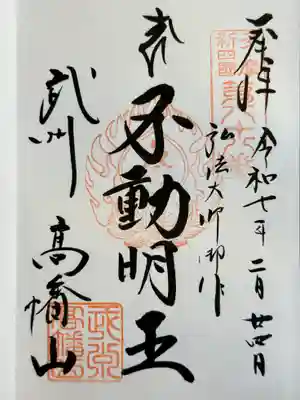 奉拝
令和七年二月廿四日
弘法大師御作
不動明王
武州
高幡山